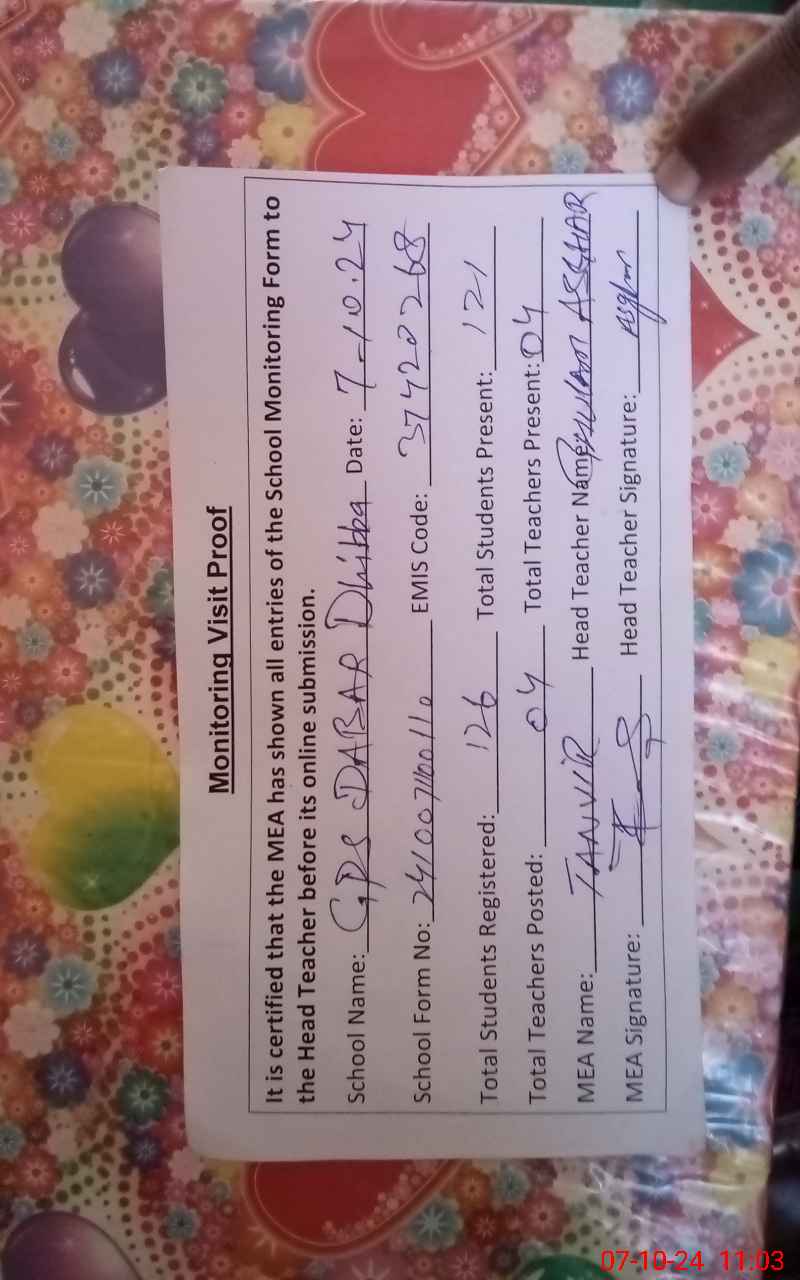 Monitoring Visit Proof
It is certified that the MEA has shown all entries of the School Monitoring Form to
the Head Teacher before its online submission.
School Name: GPS DABAR Dhibba Date: 7-10.24
School Form No: EMIS Code: 37420268
Total Students Registered: 126 Total Students Present: 121
Total Teachers Posted: 04 Total Teachers Present: 04
MEA Name: TANVIR Head Teacher Name: GHULAM ASGHAR
MEA Signature: Head Teacher Signature:
07-10-24 11:03